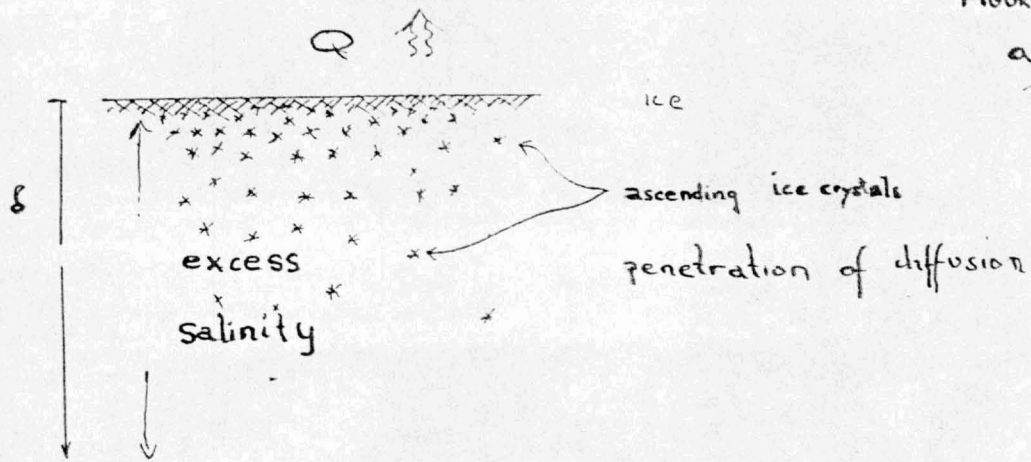 Q
ice
δ
ascending ice crystals
excess
penetration of diffusion
salinity